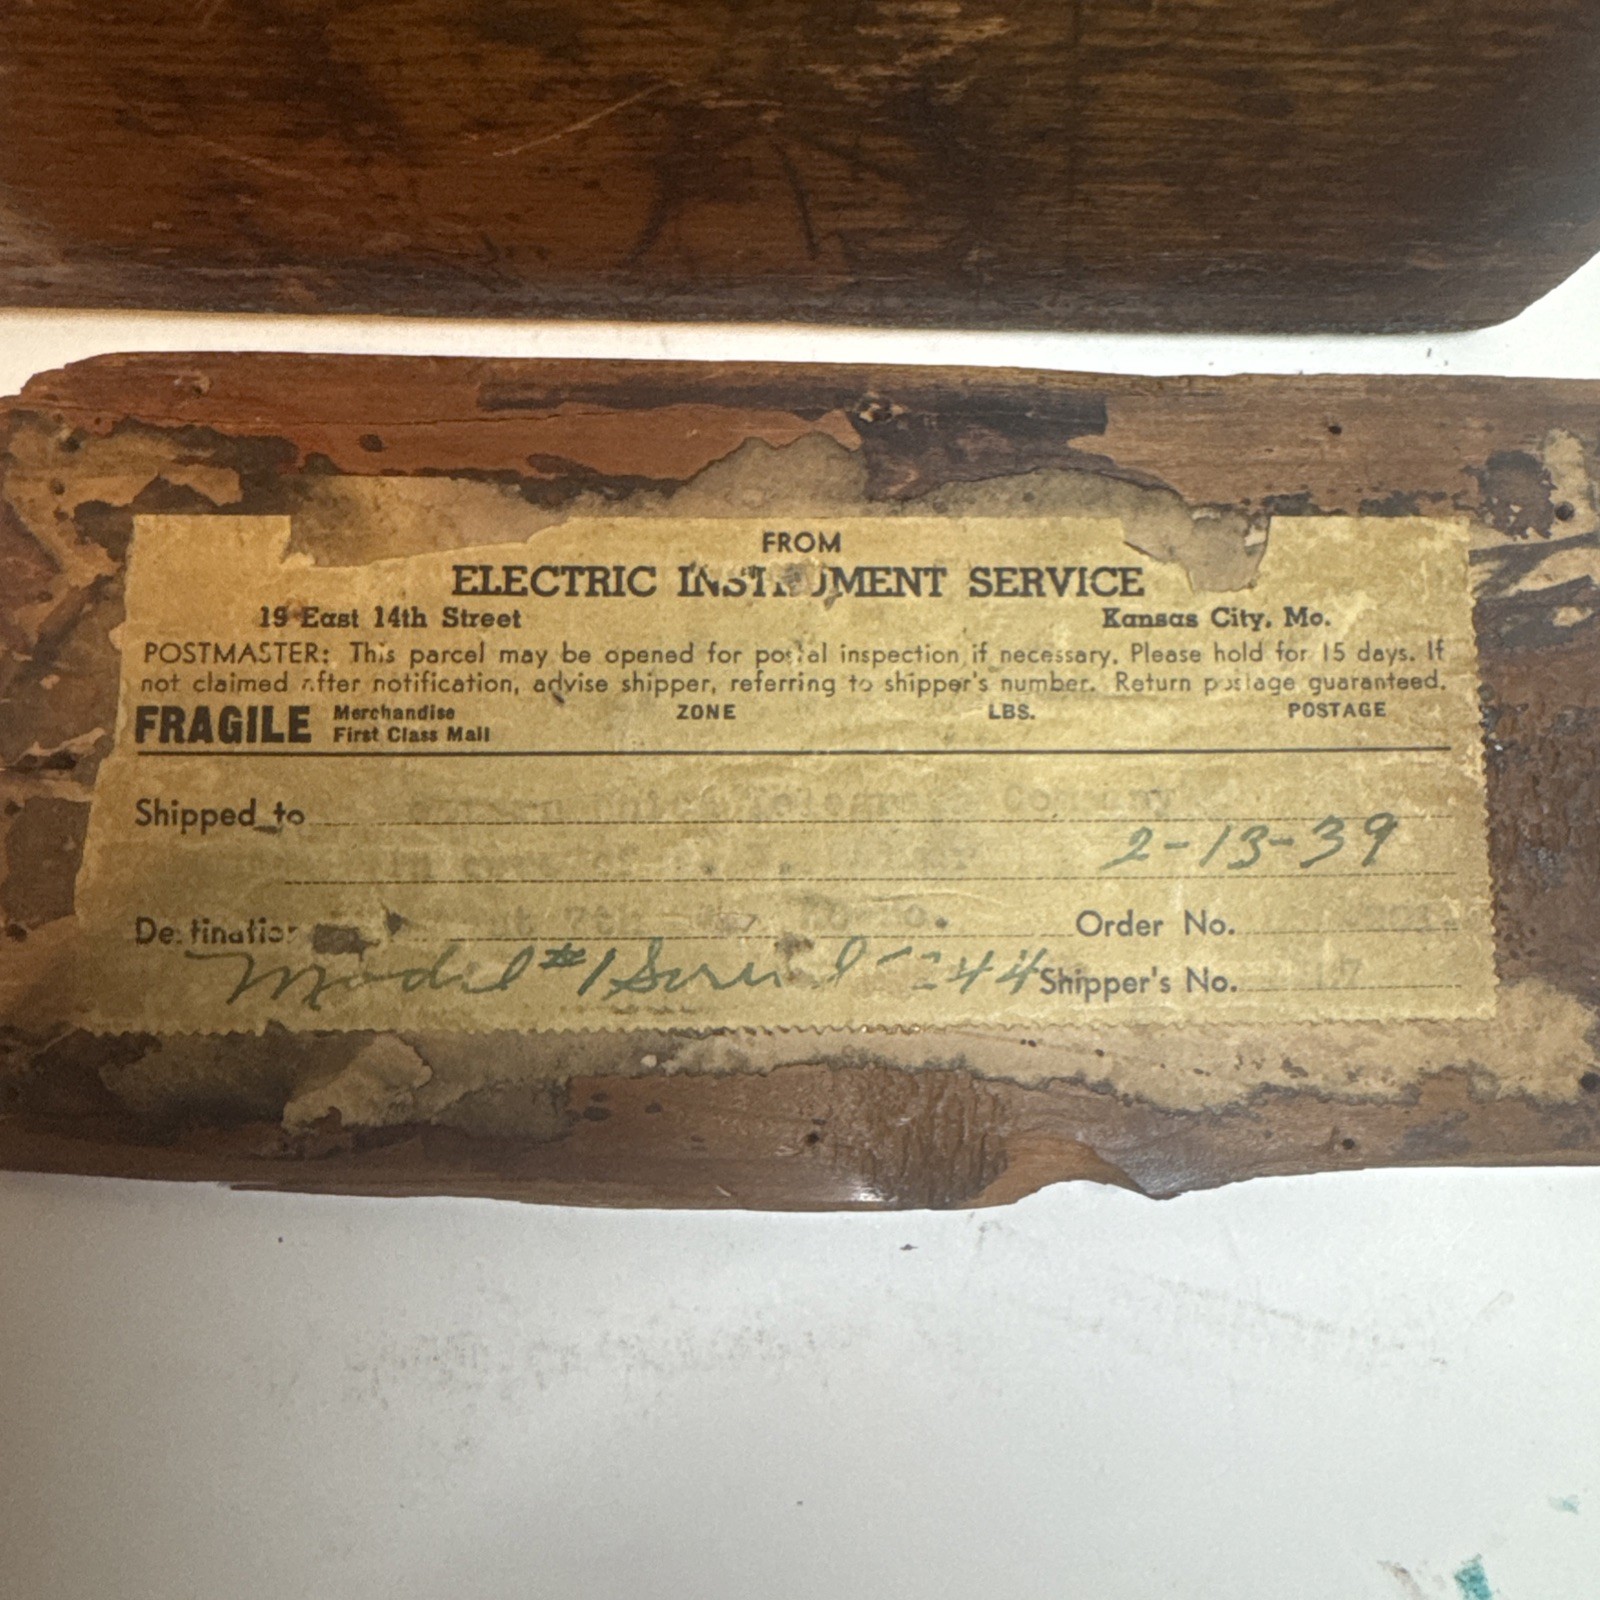 FROM
ELECTRIC INSTRUMENT SERVICE
19 East 14th Street Kansas City, Mo.
POSTMASTER: This parcel may be opened for postal inspection if necessary. Please hold for 15 days. If
not claimed after notification, advise shipper, referring to shipper's number. Return postage guaranteed.
FRAGILE Merchandise ZONE LBS. POSTAGE
First Class Mail
Shipped to
2-13-39
Destination Order No.
Model #1 Serial 244 Shipper's No.